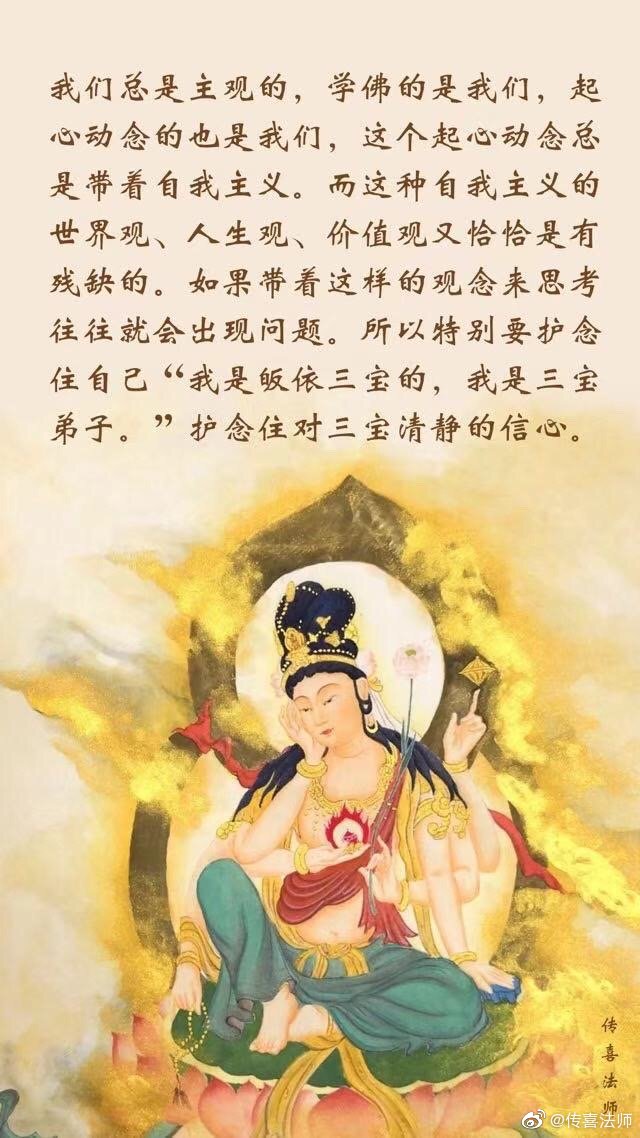 我们总是主观的，学佛的是我们，起
心动念的也是我们，这个起心动念总
是带着自我主义。而这种自我主义的
世界观、人生观、价值观又恰恰是有
残缺的。如果带着这样的观念来思考
往往就会出现问题。所以特别要护念
住自己“我是皈依三宝的，我是三宝
弟子。”护念住对三宝清静的信心。
传喜法师
@传喜法师